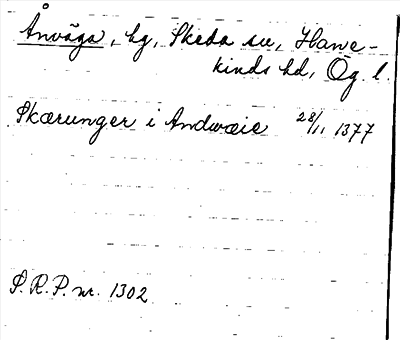 Ånväga, by, Skeda sn, Hane-
kinds hd, Ög. l.
Skærunger i Andwæie 28/11 1377
S.R.P. nr. 1302